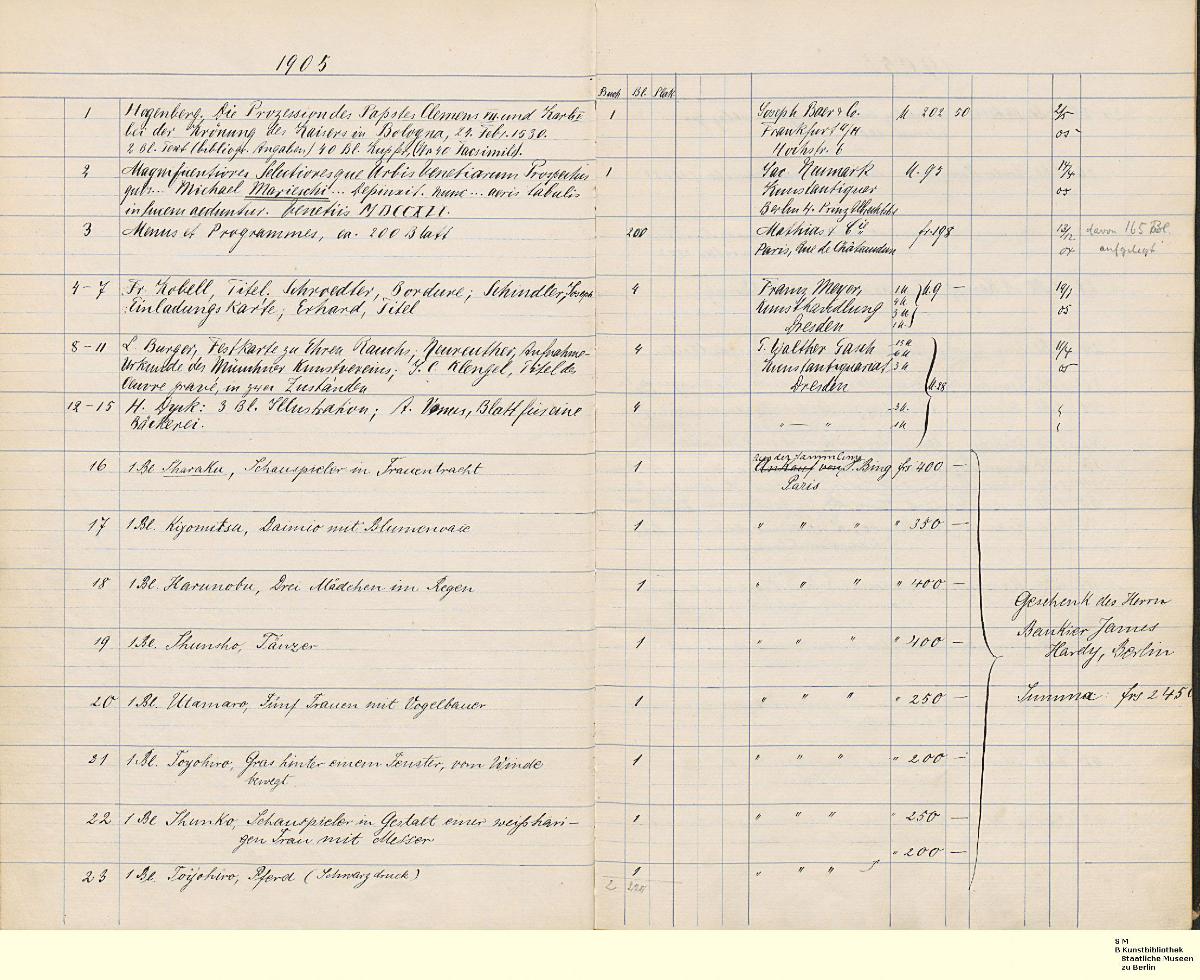 1905
Buch Bl. Plak.
1 Hogenberg, Die Prozession des Papstes Clemens VII. und Karls V. 1 Joseph Baer & Co. M 202 50 2/5
bei der Krönung des Kaisers in Bologna, 24. Febr. 1530. Frankfurt a/M 05
2 Bl. Text (bibliogr. Angaben) 40 Bl. Kupfr. Hochstr. 6
2 Magnificentiores Selectioresque Urbis Venetiarum Prospectus 1 Jac Neumark M. 95 14/4
quos... Michael Marieschi... depinxit. nunc... aeris tabulis Kunstantiquar 05
in suem aeduntur. Venetiis MDCCXLI. Berlin W. Prinz Albrechtstr
3 Menus et Programmes, ca. 200 Blatt 200 Mathias & Cie, fr 198 13/12 davon 165 Bl.
Paris, Rue de Châteaudun 04 aufgelegt
4-7 Fr. Kobell, Titel. Schroedter, Bordure; Schindler, Joseph 4 Franz Meyer, 1 M M. 9 — 19/1
Einladungskarte; Erhard, Titel Kunsthandlung 4 M 3 M 05
Dresden 1 M.
8-11 L. Burger, Festkarte zu Ehren Rauchs; Neureuther, Aufnahme- 4 T. Walther Gasch 11/4
Urkunde des Münchner Kunstvereins; J. C. Klengel, Titel des Kunstantiquariat 3 M 05
Oeuvre gravé, in zwei Zuständen Dresden M. 38
12-15 H. Dyck: 3 Bl. Illustration; A. Venus, Blatt für eine 4 3 M.
Bäckerei. " — " 1 M
16 1 Bl Sharaku, Schauspieler in Frauentracht 1 aus der Sammlung Ankauf von S. Bing frs 400 —
Paris
17 1 Bl. Kiyomitsu, Daimio mit Blumenvase 1 " " " " 350 —
18 1 Bl. Harunobu, Drei Mädchen im Regen 1 " " " " 400 —
Geschenk des Herrn
Bankier James
19 1 Bl. Shunsho, Tänzer 1 " " " " 400 —
Hardy, Berlin
20 1 Bl. Utamaro, Fünf Frauen mit Vogelbauer 1 " " " " 250 — Summa frs 2450
21 1 Bl. Toyohiro, Gras hinter einem Fenster, vom Winde 1 " " " " 200 —
bewegt
22 1 Bl Shunko, Schauspieler in Gestalt einer weißhaari- 1 " " " " 250 —
gen Frau mit Messer
" 200 —
23 1 Bl. Toyohiro, Pferd (Schwarzdruck) 1 " " "
2 220
S M
B Kunstbibliothek
Staatliche Museen
zu Berlin